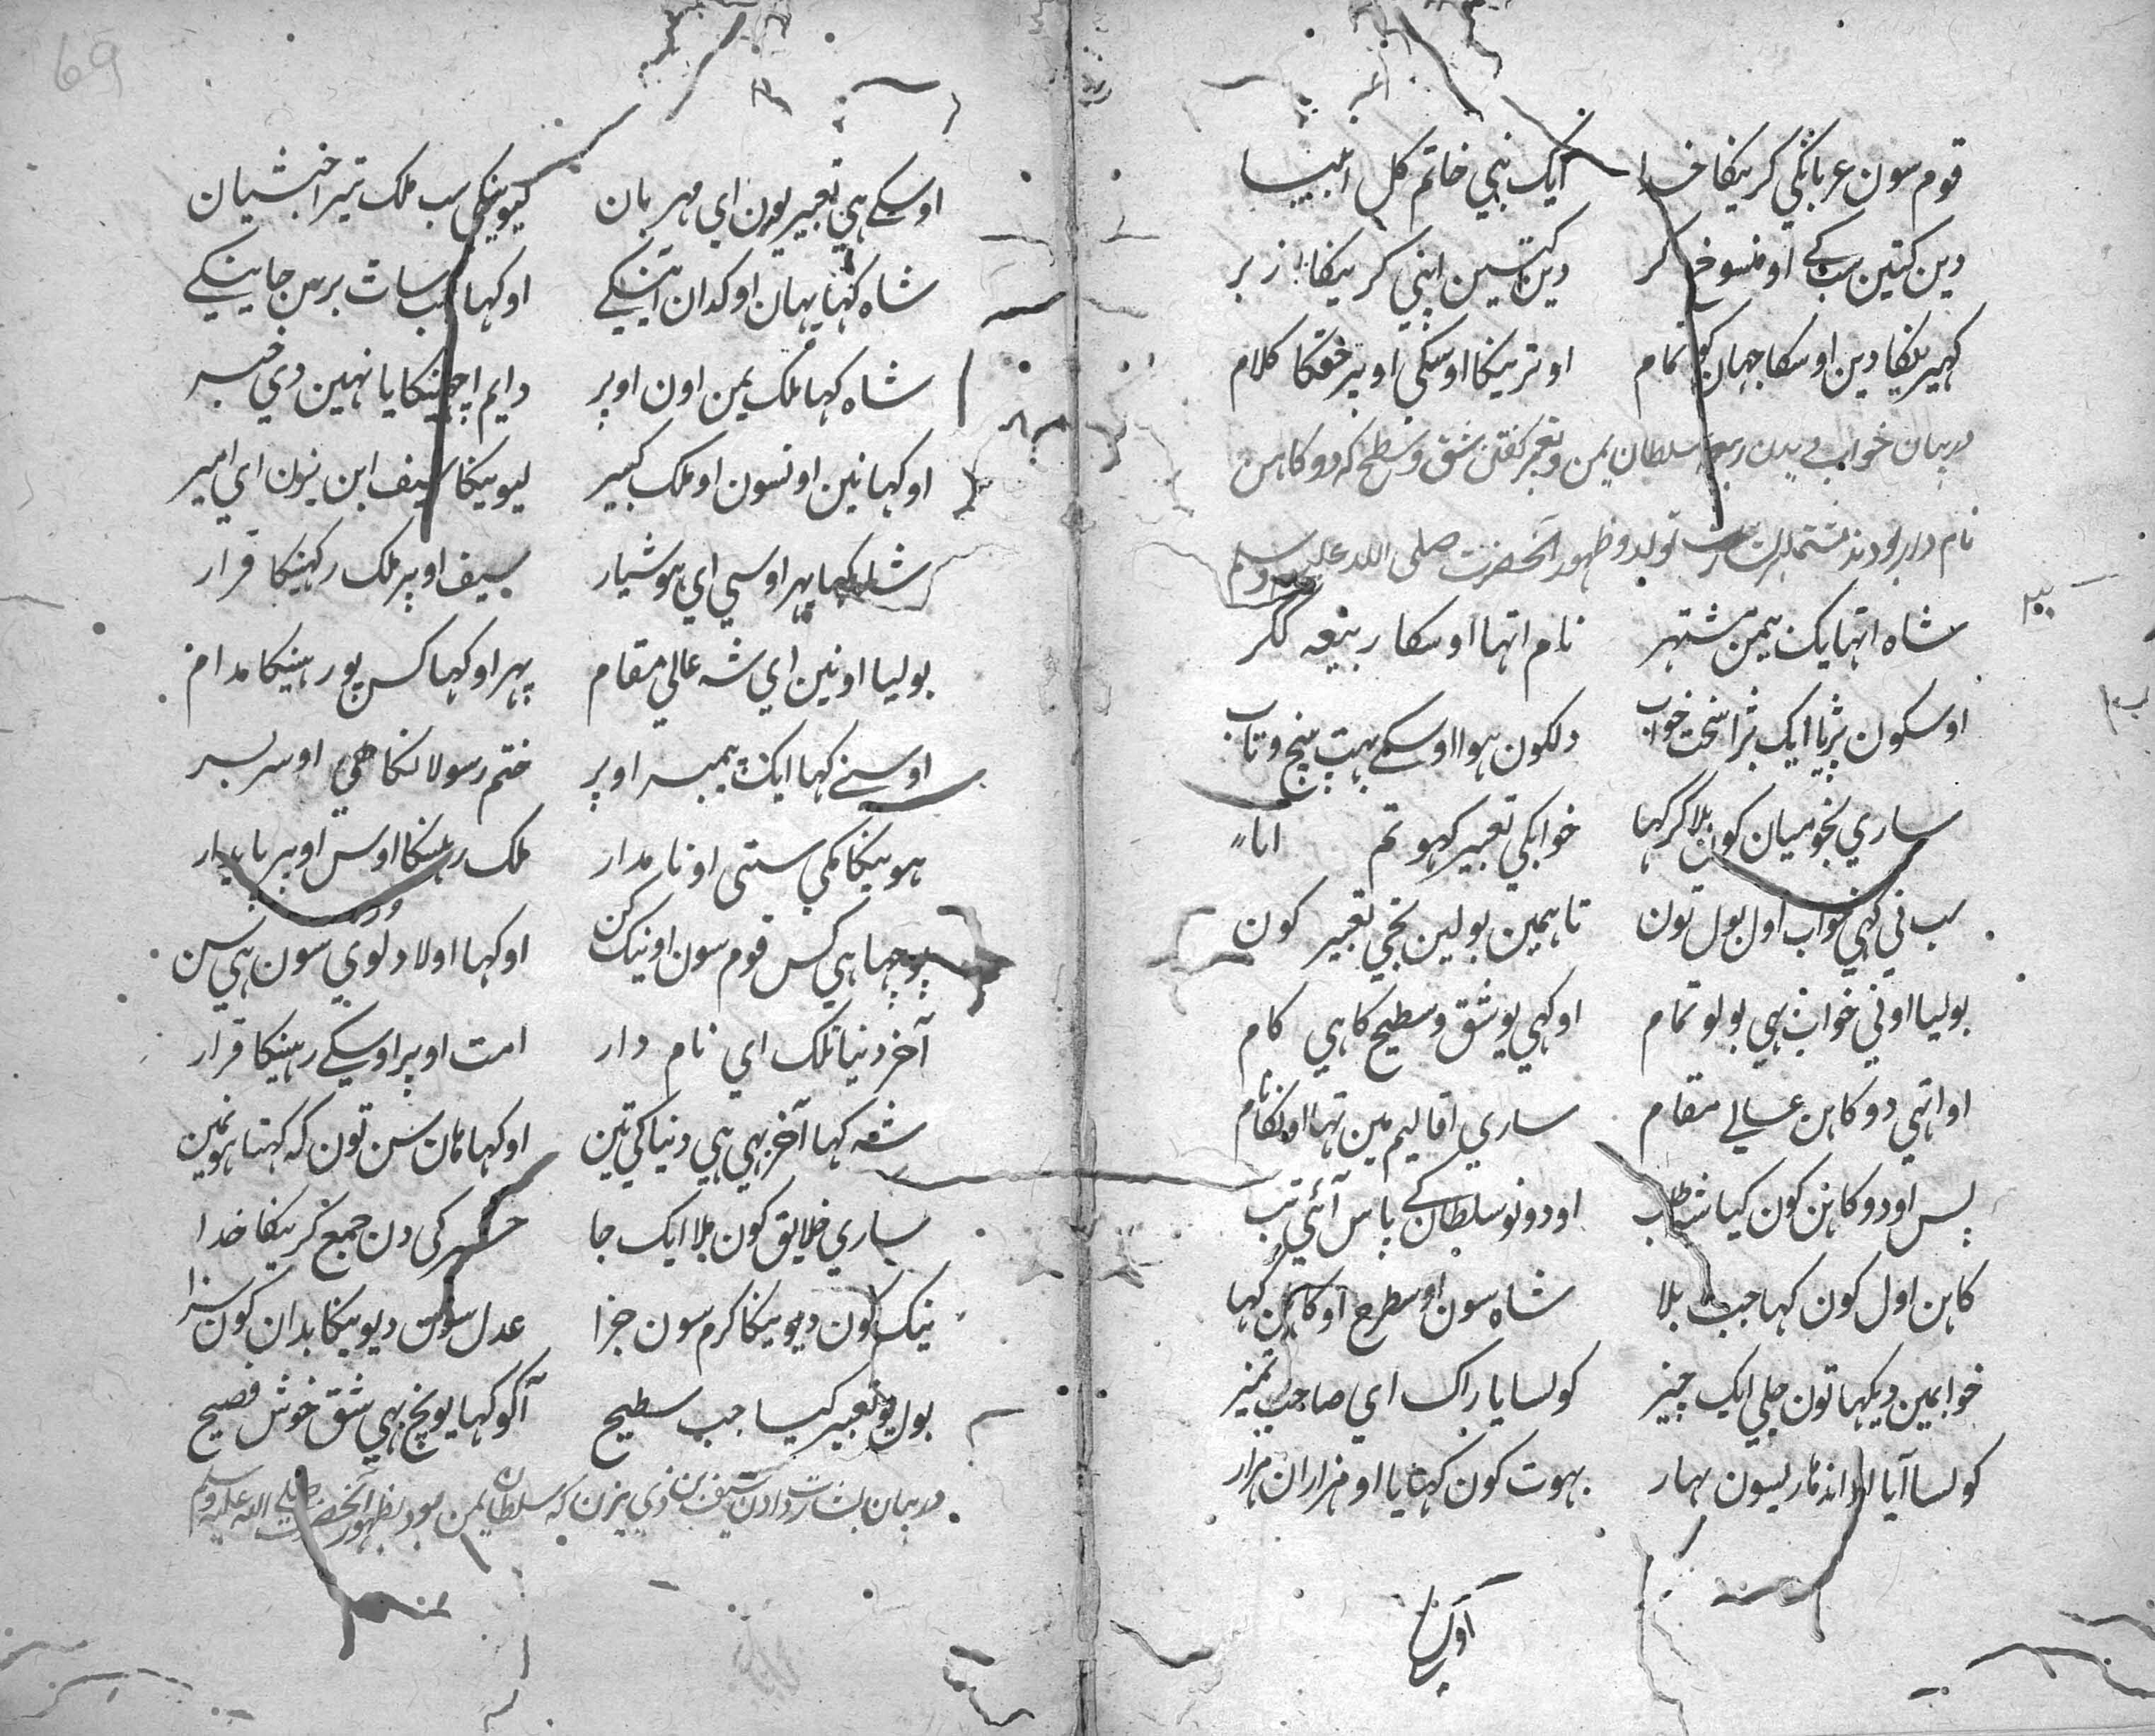 قوم سون عربانکي کریکا خدا ایک نبي خاتم کل انبیا
دین کتین سب کے او منسوخ کر دین کتین اپني کریکا زبر
کہیریکا دین اوسکا جہان کو تمام اوتریکا اوسکي اوپر حقکا کلام
دربیان خواب دیدن ربیعه سلطان یمن و تعبیر گفتن شق و سطیح که دو کاهن
نام دار بودند مشتمل بشارت تولد و ظهور آنحضرت صلی الله علیه وسلم
شاه اتها یک یمن مشتهر نام اتها اوسکا ربیعه مگر
اوسکون پڑیا ایک بڑا سخت خواب دلکون ہوا اوسکے بہت پیچ و تاب
ساري نجومیان کون بلا کر کہا خوابکي تعبیر کہو تم اما
سب ني کہي خواب اول بول تون تا ہمین بولین تجي تعبیر کون
بولیا اوني خواب بہي بولو تمام او کہي یو شق و سطیح کا ہي کام
او اتهي دو کاہن عالے مقام ساري اقالیم مین تها اونکا نام
پس او دو کاہن کون کیا شہ طلب او دونو سلطان کے پاس آئي تب
کاہن اول کون کہا جب بلا شاه سون اوسطرح او کاہن کہا
خوابمین دیکہا تون جلي ایک چیز کولسا یا راک اي صاحب تمیز
کولسا آیا او اندہاریسون بہار بہوت کون کہایا او ہزاران ہزار
اوسکے
69
اوسکے ہي تعبیر یون اي مہربان لیوینگي سب ملک تیرا حبشیان
شاه کہا یہان او کدان آینگے او کہا سب سات برس جاینگے
شاه کہا ملک یمن اون اوپر دایم اچهیگا یا نہین دي خبر
او کہا نین اونسون او ملک کبیر لیویگا سیف ابن یزن اي امیر
شاه کہا پہر اوسي اي ہوشیار سیف اوپر ملک رہیگا قرار
بولیا او نین اي شہ عالي مقام پہر او کہا کس پو رہیگا مدام
اوسنے کہا ایک پیمبر اوپر ختم رسولانکا ہي او سربسر
ہوینگا مکي ستي او نامدار ملک رہیگا اوس اوپر پایدار
پوچہا ہي کس قوم سون او نیک کن او کہا اولاد لوي سون ہي سن
آخر دنیا تلک اي نام دار امت اوپر اوسکے رہیگا قرار
شہ کہا آخر بہي ہي دنیا کتین او کہا ہان سن تون کہ کہتا ہون مین
ساري خلایق کون بلا ایک جا حشر کي دن جمع کریکا خدا
نیک کون دیویگا کرم سون جزا عدل سون دیویگا بدان کون سزا
بول یو تعبیر کیا جب سطیح آکو کہا یونچ بہي شق خوش فصیح
دربیان بشارت دادن سیف بن ذي یزن که سلطان یمن بود بظهور آنحضرت صلي الله علیه وسلم